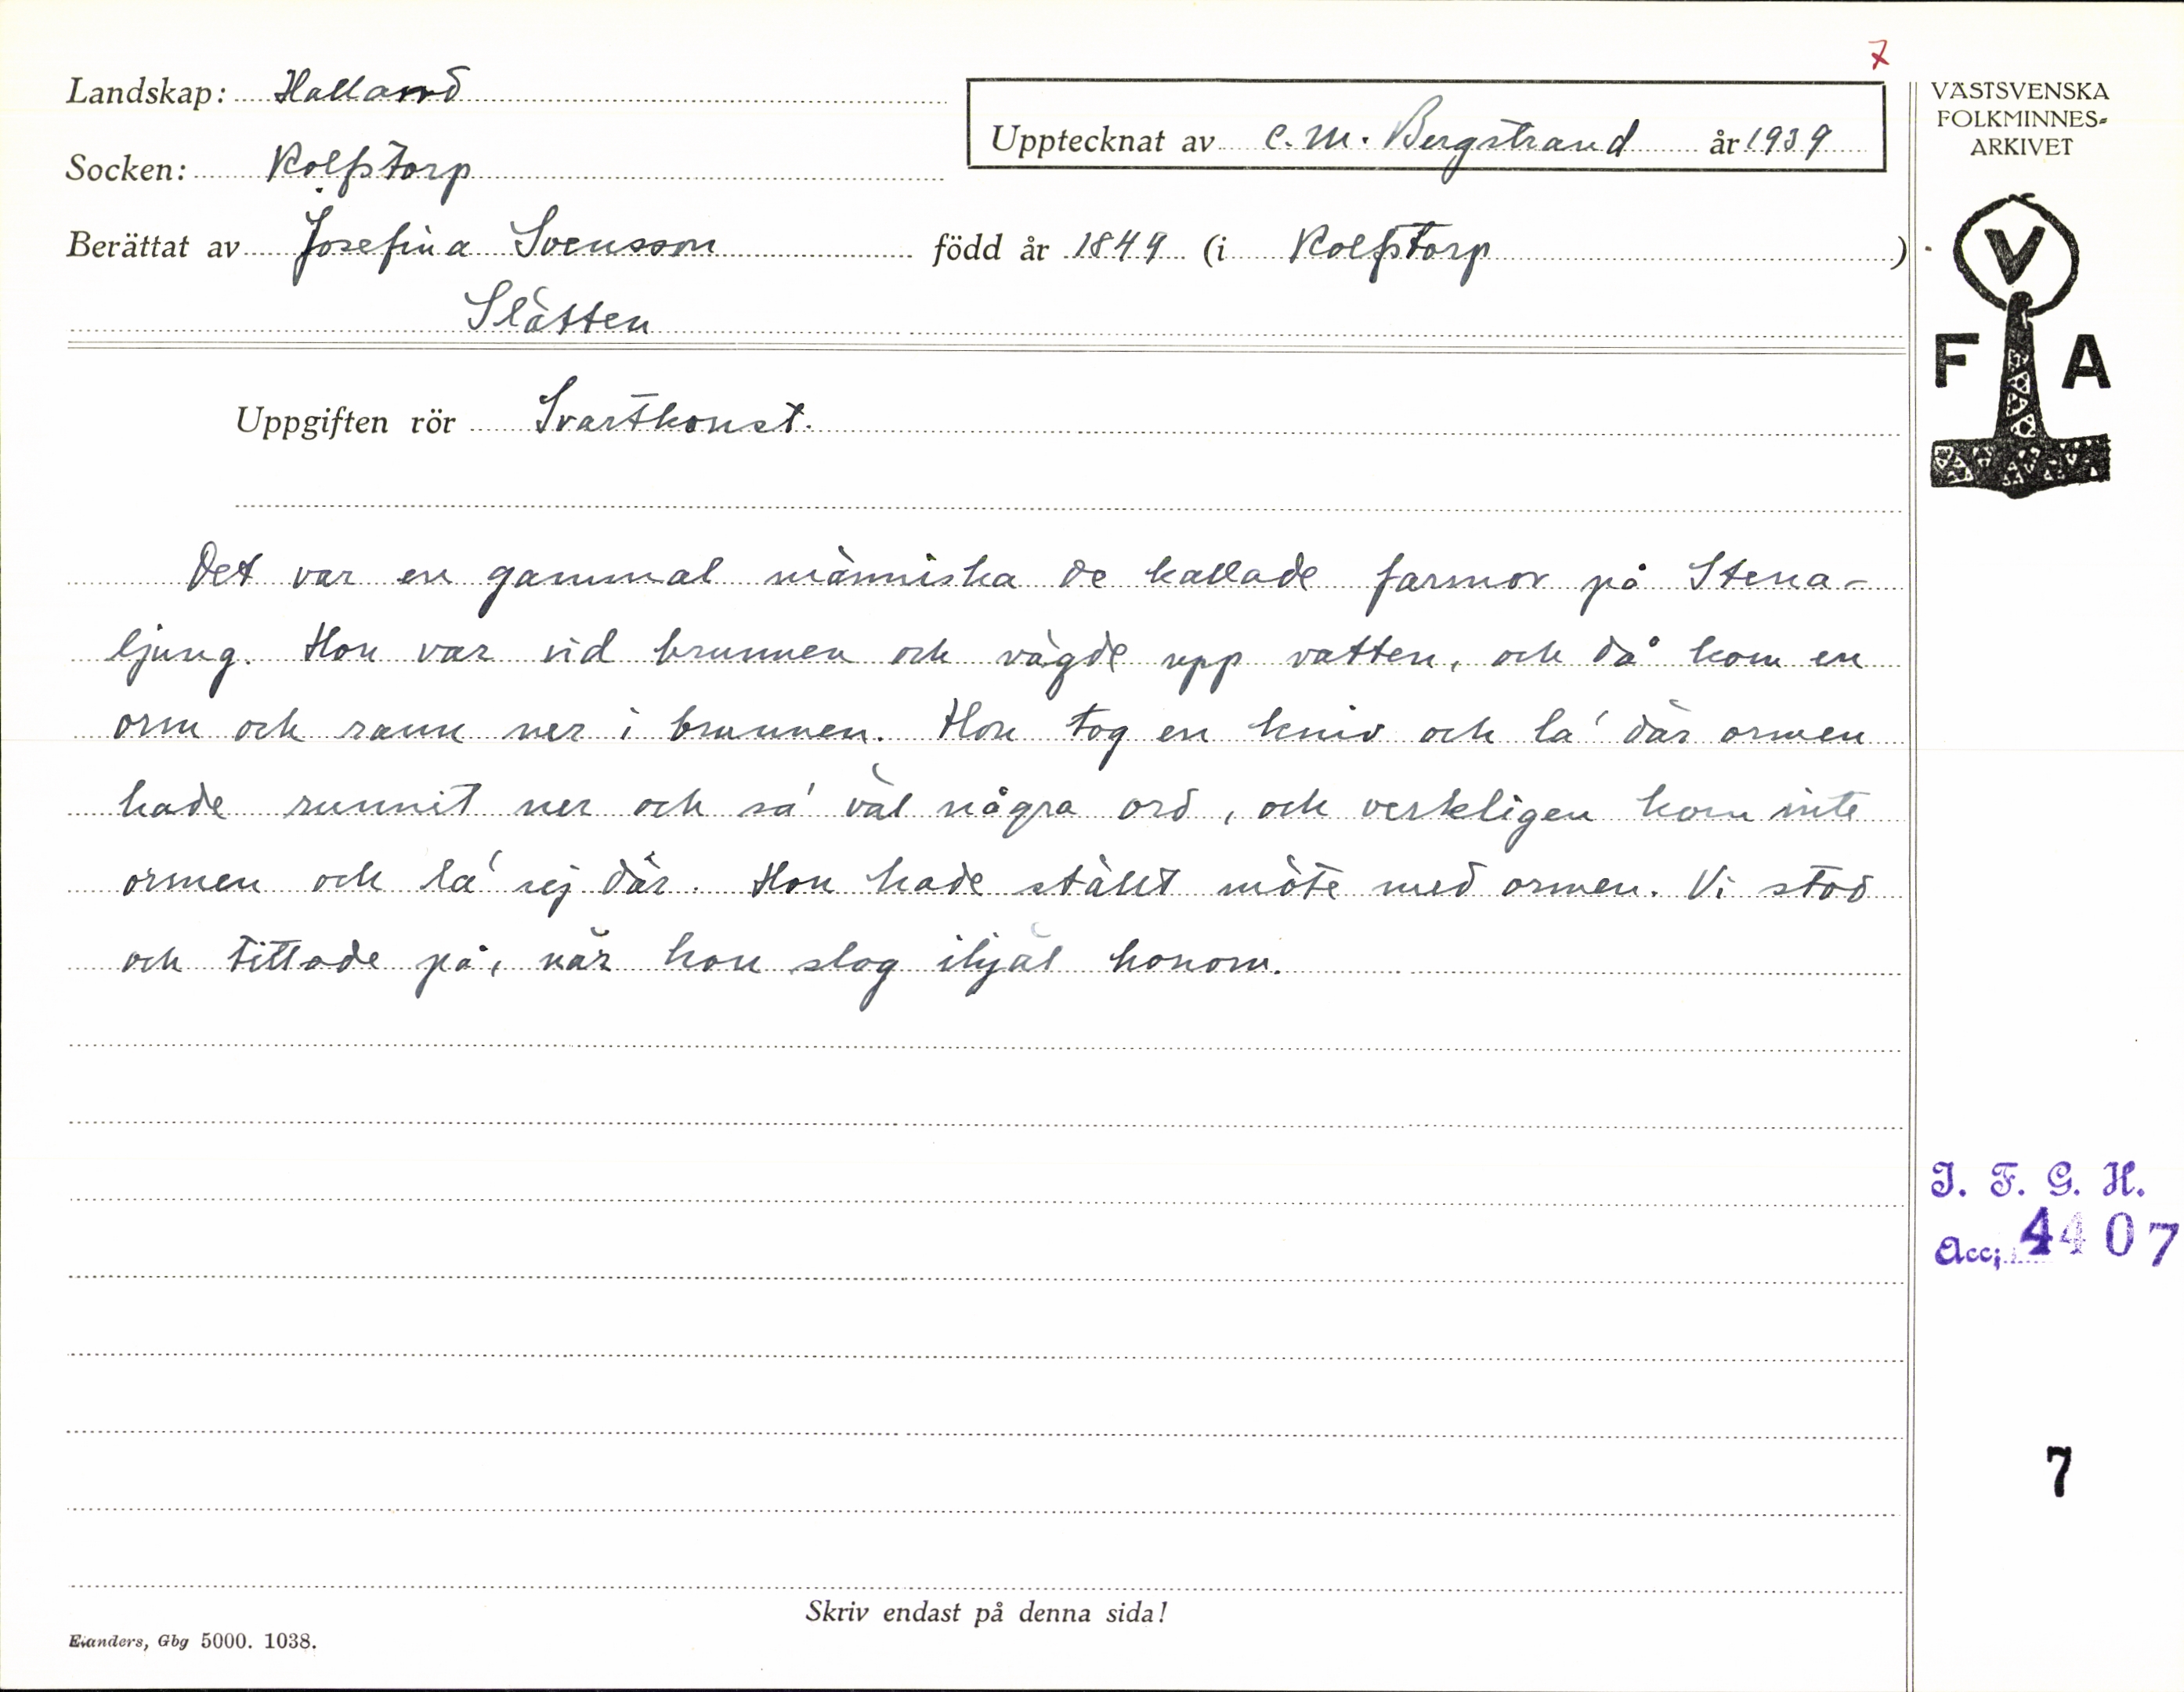 7
Landskap: Halland
Socken: Rolfstorp
Upptecknat av C. M. Bergstrand år 1939
Berättat av Josefina Svensson född år 1849 (i Rolfstorp)
Slätten
VÄSTSVENSKA
FOLKMINNES-
ARKIVET
V
F A
Uppgiften rör Svartkonst.
Det var en gammal människa de kallade farmor på Stena-
ljung. Hon var vid brunnen och vägde upp vatten, och då kom en
orm och rann ner i brunnen. Hon tog en kniv och la' där ormen
hade runnit ner och sa' väl några ord, och verkligen kom inte
ormen och la' sej där. Hon hade ställt möte med ormen. Vi stod
och tittade på, när hon slog ihjäl honom.
I. F. G. H.
Acc; 4407
7
Skriv endast på denna sida!
Elanders, Gbg 5000. 1038.